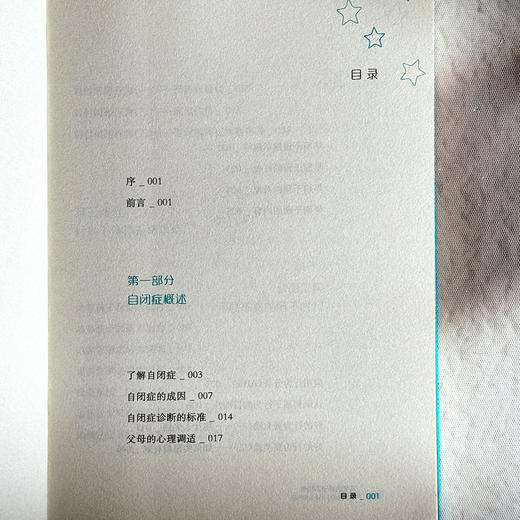 目录
序 _ 001
前言 _ 001
第一部分
自闭症概述
了解自闭症 _ 003
自闭症的成因 _ 007
自闭症诊断的标准 _ 014
父母的心理调适 _ 017
目录 _ 001